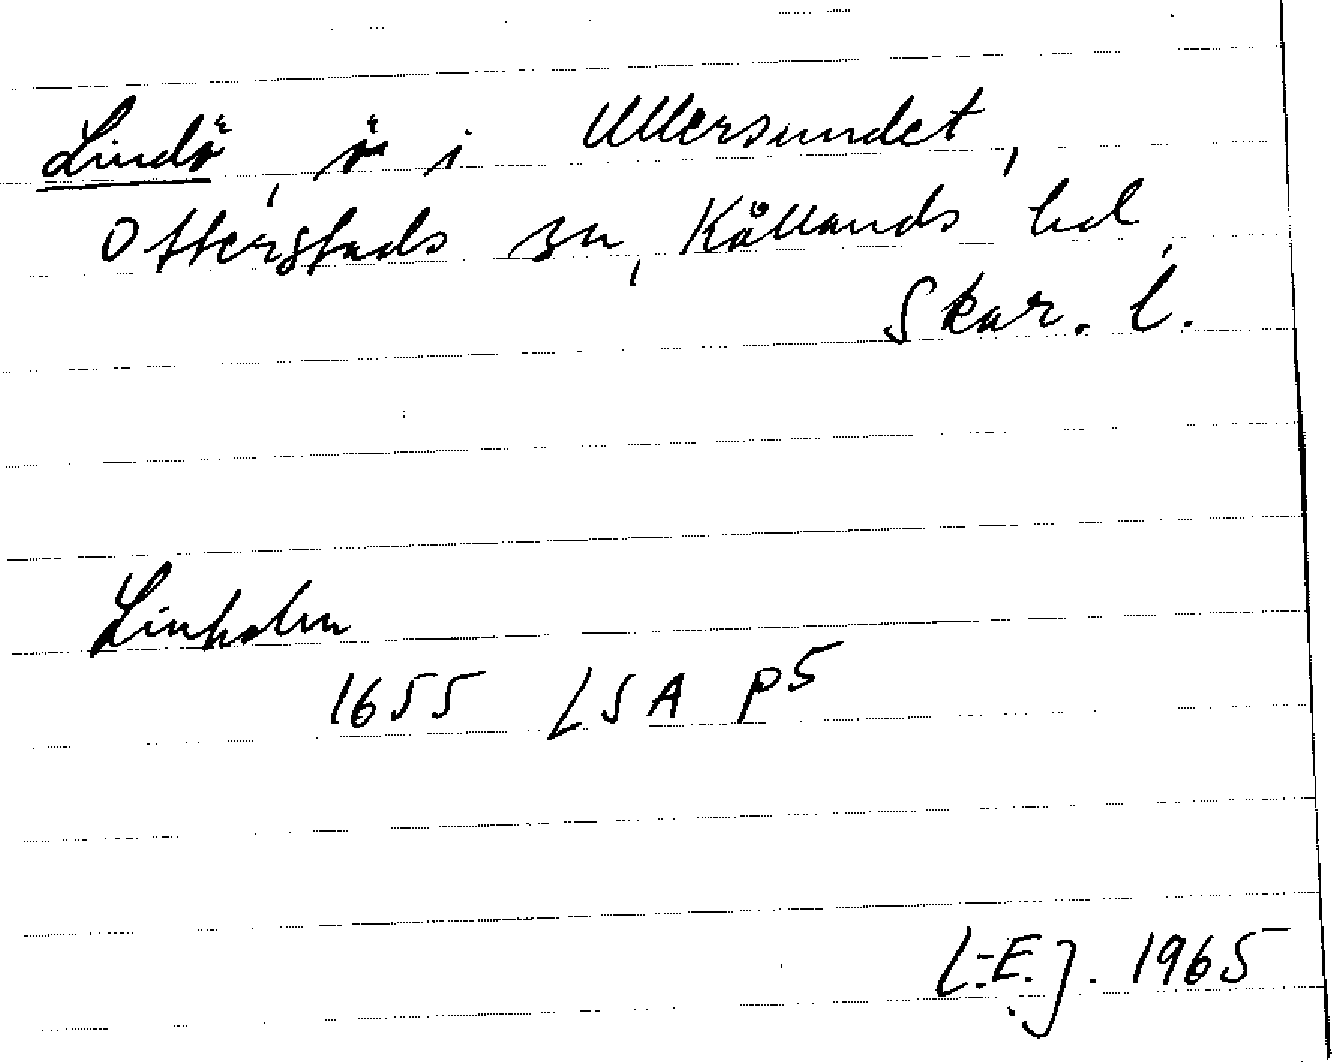 Lindö, ö i Ullersundet,
Otterstads sn, Kållands hd,
Skar. l.
Linholm
1655 LSA P5
L-E. J. 1965